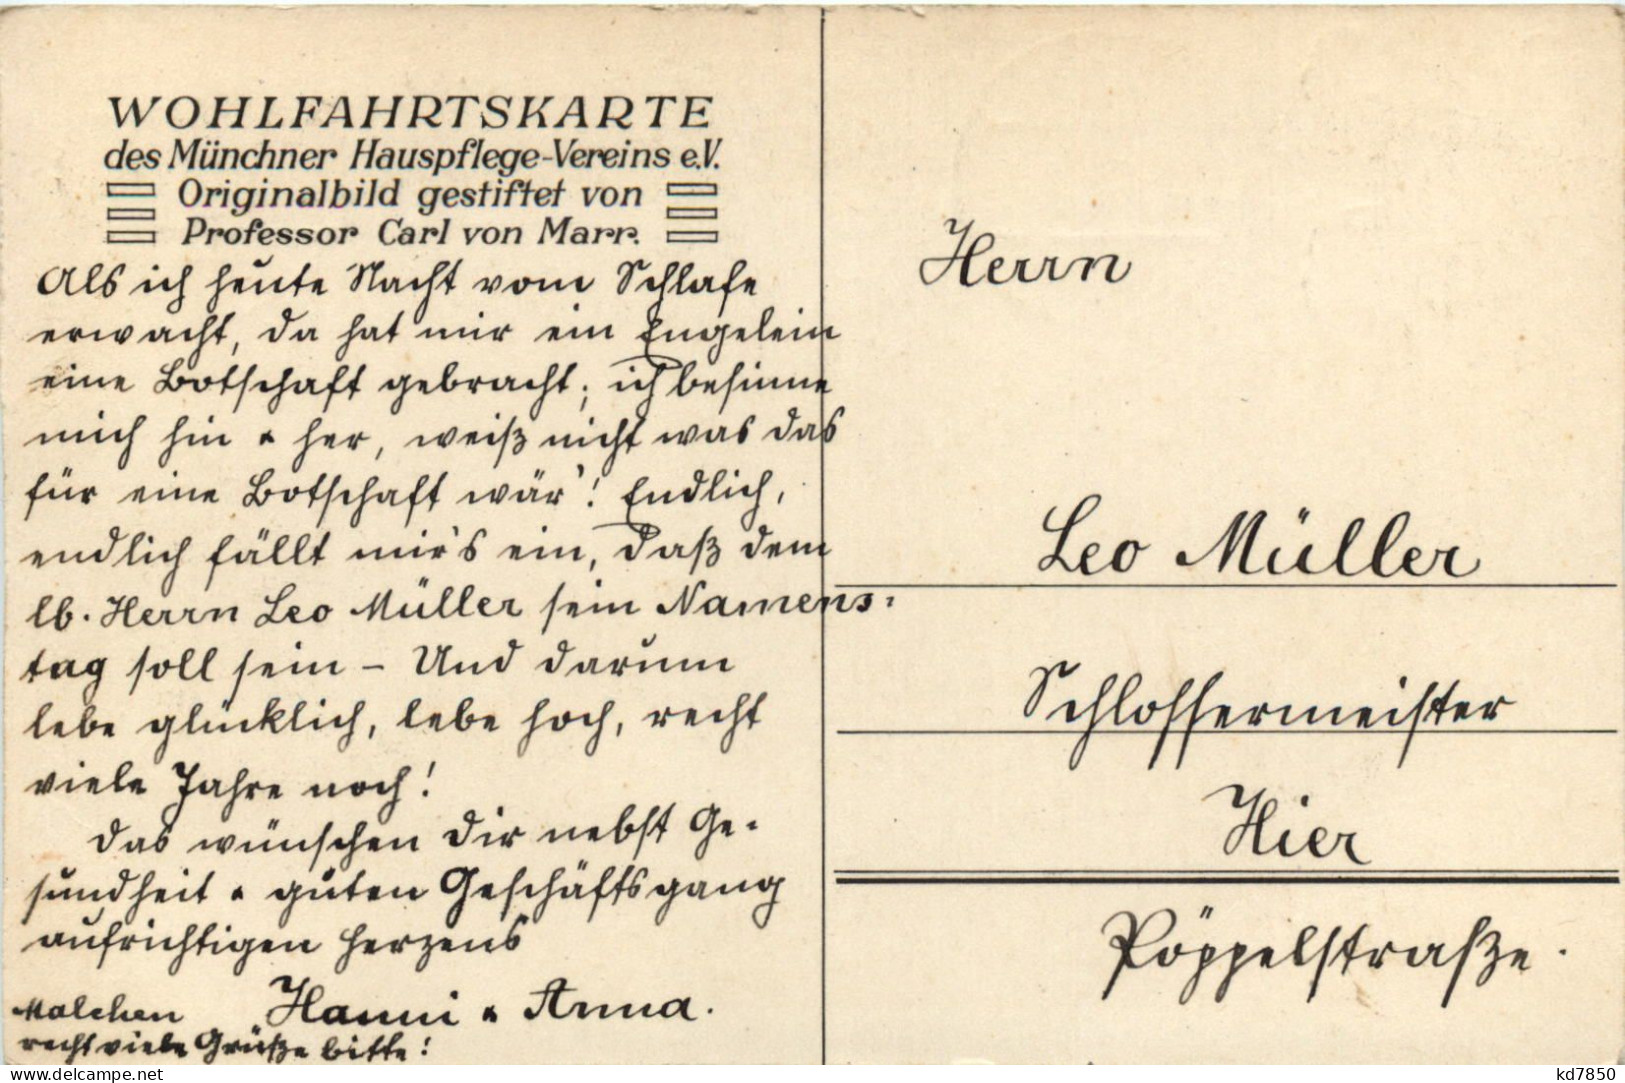 WOHLFAHRTSKARTE
des Münchner Hauspflege-Vereins e.V.
Originalbild gestiftet von
Professor Carl von Marr.
Als ich heute Nacht vom Schlafe
erwacht, da hat mir ein Engelein
eine Botschaft gebracht; ich besinne
mich hin & her, weiß nicht was das
für eine Botschaft wär'! Endlich,
endlich fällt mir's ein, daß dem
lb. Herrn Leo Müller sein Namens-
tag soll sein – Und darum
lebe glücklich, lebe hoch, recht
viele Jahre noch!
Das wünschen Dir nebst Ge-
sundheit & guten Geschäftsgang
aufrichtigen Herzens
Hanni & Anna.
Malchen
recht viele Grüße bitte!
Herrn
Leo Müller
Schlossermeister
Hier
Pöppelstraße.
kd7850